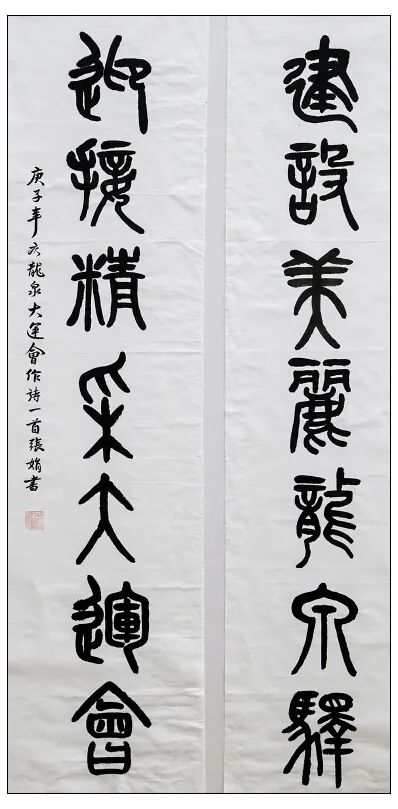 建設美麗龍泉驛
迎接精采大運會
庚子年六龍泉大運會作詩一首張娟書